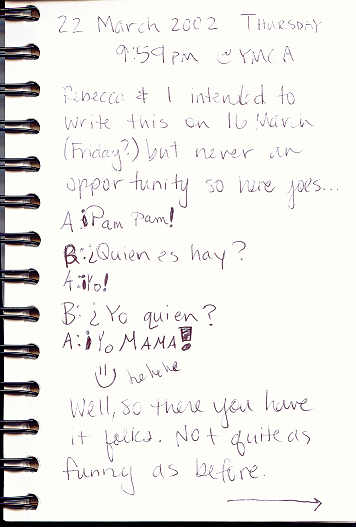 22 March 2002 Thursday
9:59pm @ YMCA
Rebecca & I intended to
write this on 16 March
(Friday?) but never an
opportunity so here goes...
A: ¡Pam Pam!
B: ¿Quien es hay?
A: ¡Yo!
B: ¿Yo quien?
A: ¡Yo MAMA!
hehehe
Well, so there you have
it folks. Not quite as
funny as before.